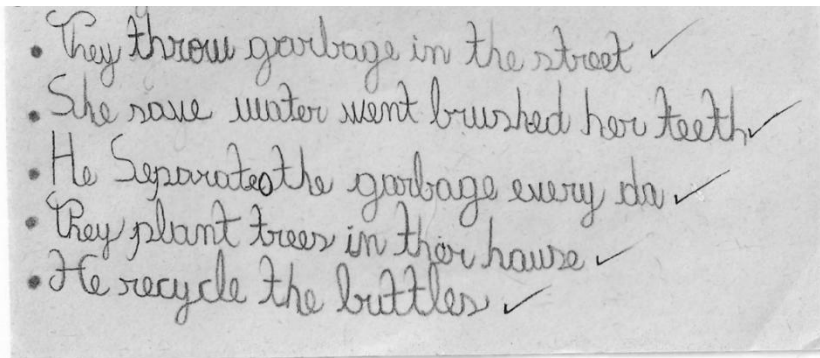 • They throw garbage in the street ✓
• She save water went brushed her teeth ✓
• He Separates the garbage every da ✓
• They plant trees in their hause ✓
• He recycle the buttles ✓